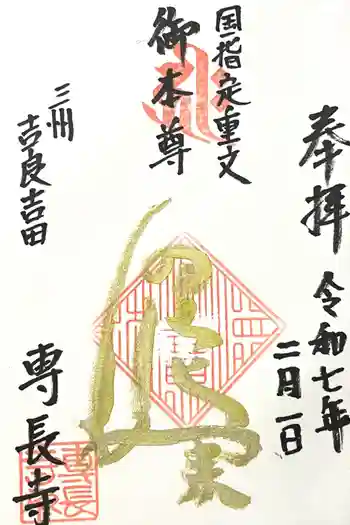 奉拝
令和七年
二月一日
国指定重文
御本尊
三州
吉良吉田
専長寺